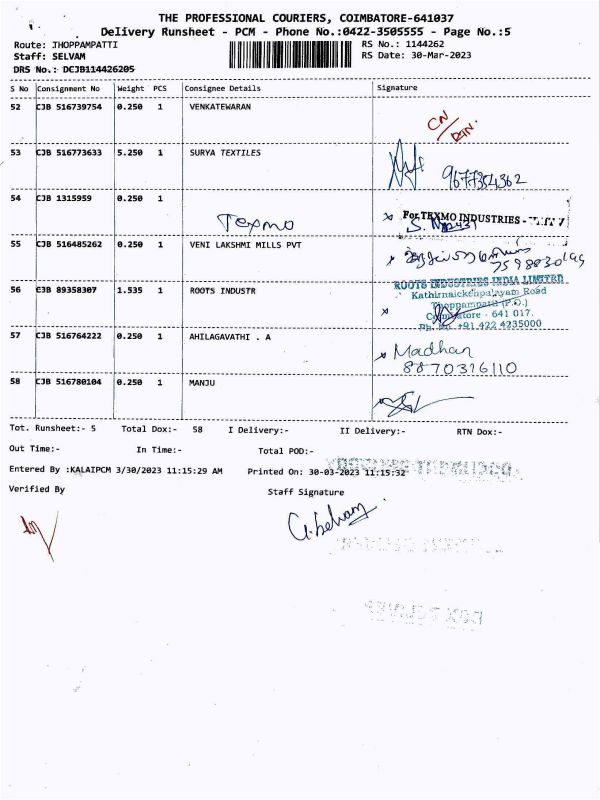 THE PROFESSIONAL COURIERS, COIMBATORE-641037
Delivery Runsheet - PCM - Phone No.:0422-3505555 - Page No.:5
Route: JHOPPAMPATTI
RS No.: 1144262
Staff: SELVAM
RS Date: 30-Mar-2023
DRS No.: DCJB114426205
S No Consignment No Weight PCS Consignee Details Signature
52 CJB 516739754 0.250 1 VENKATEWARAN
CN/RTN.
53 CJB 516773633 5.250 1 SURYA TEXTILES
9677354362
54 CJB 1315959 0.250 1
Texmo
For TEXMO INDUSTRIES -
55 CJB 516485262 0.250 1 VENI LAKSHMI MILLS PVT
56 CJB 89358307 1.535 1 ROOTS INDUSTR
ROOTS INDUSTRIES INDIA LIMITED
Kathirnaickenpalayam Road
Thoppampatti (P.O.)
Coimbatore - 641 017.
Ph. No. +91 422 4235000
57 CJB 516764222 0.250 1 AHILAGAVATHI . A
Madhan
8870316110
58 CJB 516780104 0.250 1 MANJU
Tot. Runsheet:- 5 Total Dox:- 58 I Delivery:- II Delivery:- RTN Dox:-
Out Time:- In Time:- Total POD:-
Entered By :KALAIPCM 3/30/2023 11:15:29 AM Printed On: 30-03-2023 11:15:32
Verified By
Staff Signature
G.Selvam